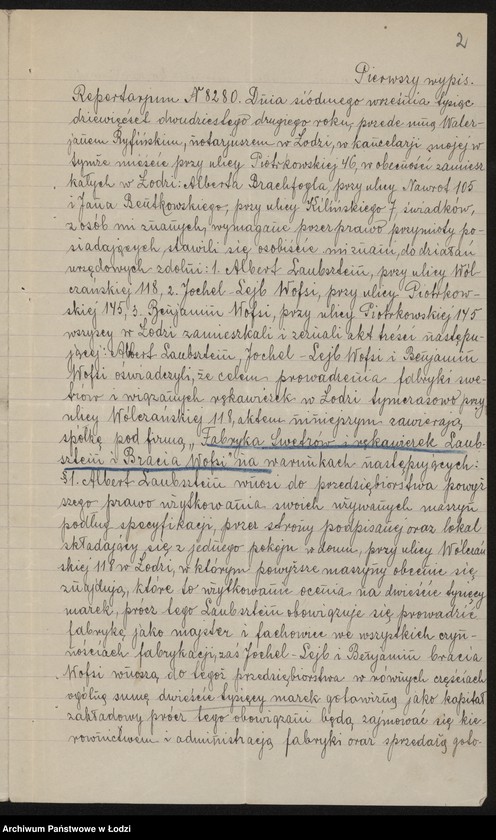 2
Pierwszy wypis.
Repertorjum № 8280. Dnia siódmego września tysiąc
dziewięćset dwudziestego drugiego roku, przede mną Waler-
janem Ryfińskim, notarjuszem w Łodzi, w kancelarji mojej w
tymże mieście przy ulicy Piotrkowskiej 46, w obecności zamiesz
kałych w Łodzi: Alberta Brachfogla, przy ulicy Nawrot 105
i Jana Beutkowskiego, przy ulicy Kilińskiego 7, świadków,
z osób mi znanych, wymagane przez prawo przymioty po-
siadających, stawili się osobiście mi znani, do działań
urzędowych zdolni: 1. Albert Laubsztein, przy ulicy Wól
czańskiej 118, 2. Jochel-Lejb Wofsi, przy ulicy Piotrkow-
skiej 145, 3. Benjamin Wofsi, przy ulicy Piotrkowskiej 145
wszyscy w Łodzi zamieszkali i zeznali akt treści następu-
jącej: Albert Laubsztein, Jochel-Lejb Wofsi i Benjamin
Wofsi oświadczyli, że celem prowadzenia fabryki swe-
trów i wiązanych rękawiczek w Łodzi tymczasowo przy
ulicy Wólczańskiej 118, aktem niniejszym zawierają
spółkę pod firmą „Fabryka Swetrów i rękawiczek Laub-
sztein i Bracia Wofsi" na warunkach następujących:
§1. Albert Laubsztein wnosi do przedsiębiorstwa powyż
szego prawo użytkowania swoich używanych maszyn
podług specyfikacji, przez strony podpisanej oraz lokal
składający się z jednego pokoju w domu, przy ulicy Wólczań
skiej 118 w Łodzi, w którym powyższe maszyny obecnie się
znajdują, które to użytkowanie ocenia na dwieście tysięcy
marek, prócz tego Laubsztein obowiązuje się prowadzić
fabrykę jako majster i fachowiec we wszystkich czyn-
nościach fabrykacji, zaś Jochel-Lejb i Benjamin bracia
Wofsi wnoszą do tegoż przedsiębiorstwa w równych częściach
ogólną sumę dwieście tysięcy marek gotowizną jako kapitał
zakładowy prócz tego obowiązani będą zajmować się kie-
rownictwem i administracją fabryki oraz sprzedażą goto-
Archiwum Państwowe w Łodzi